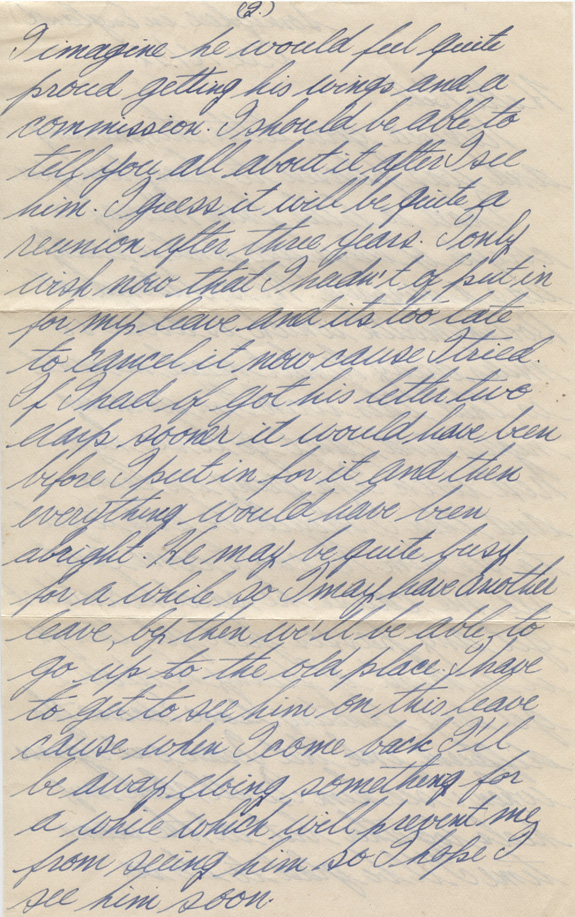 (2.)
I imagine he would feel quite
proud getting his wings and a
commission. I should be able to
tell you all about it after I see
him. I guess it will be quite a
reunion after three years. I only
wish now that I hadn't of put in
for my leave and its too late
to cancel it now cause I tried.
If I had of got his letter two
days sooner it would have been
before I put in for it and then
everything would have been
alright. He may be quite busy
for a while so I may have another
leave, by then we'll be able to
go up to the old place. I have
to get to see him on this leave
cause when I come back I'll
be away doing something for
a while which will prevent me
from seeing him so I hope I
see him soon.